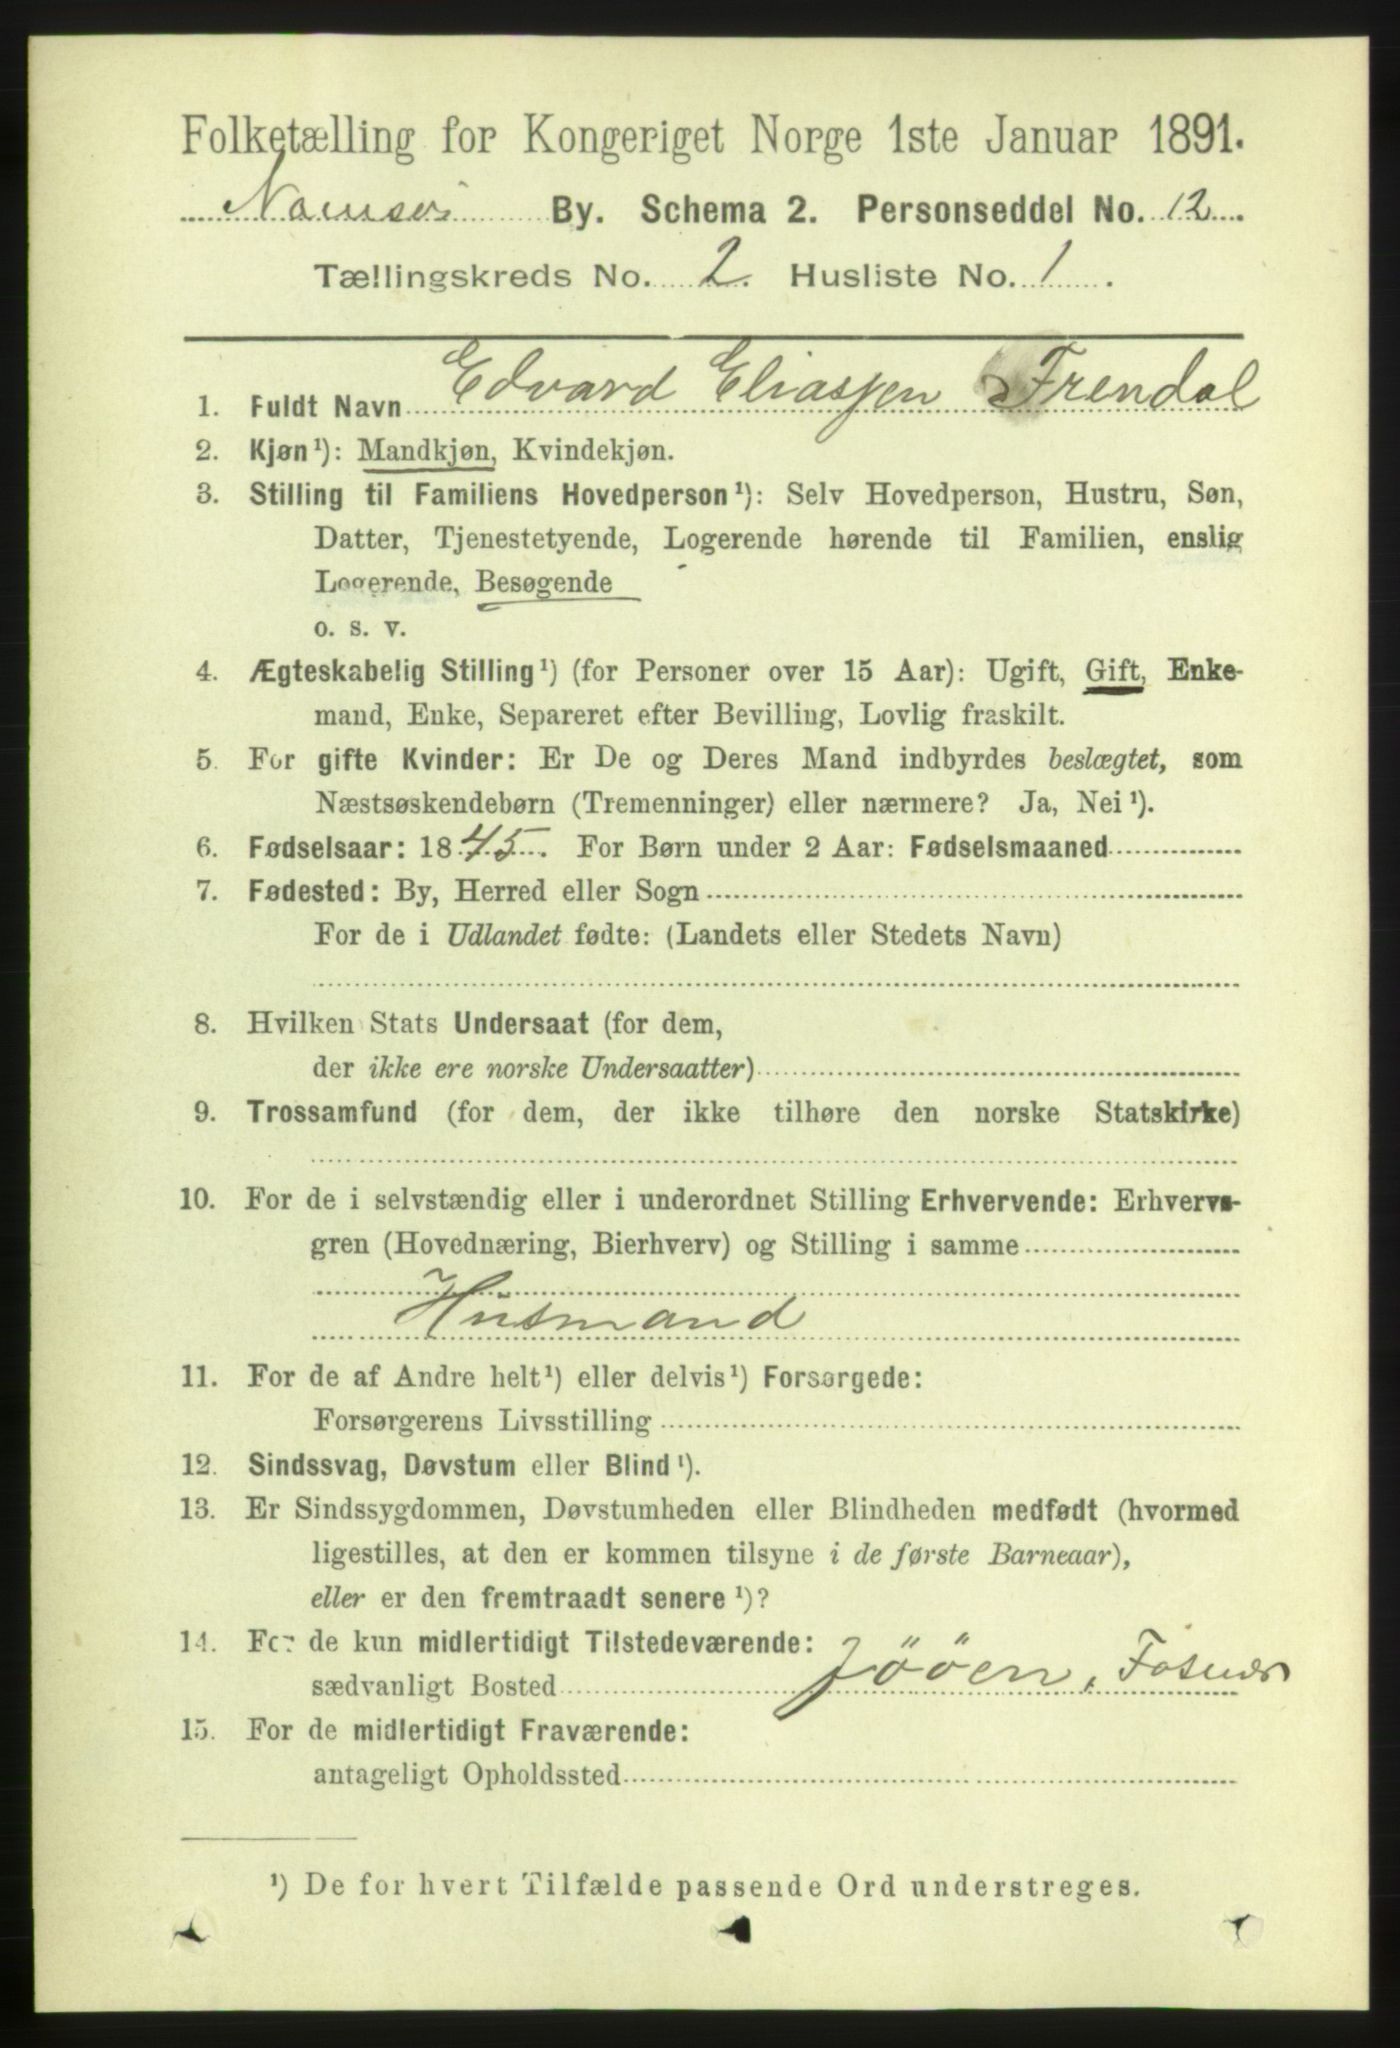 Folketælling for Kongeriget Norge 1ste Januar 1891.
Namsos By. Schema 2. Personseddel No. 12
Tællingskreds No. 2. Husliste No. 1.
1. Fuldt Navn Edvard Eliassen Frendal
2. Kjøn¹): Mandkjøn, Kvindekjøn.
3. Stilling til Familiens Hovedperson¹): Selv Hovedperson, Hustru, Søn,
Datter, Tjenestetyende, Logerende hørende til Familien, enslig
Logerende, Besøgende
o. s. v.
4. Ægteskabelig Stilling¹) (for Personer over 15 Aar): Ugift, Gift, Enke-
mand, Enke, Separeret efter Bevilling, Lovlig fraskilt.
5. For gifte Kvinder: Er De og Deres Mand indbyrdes beslægtet, som
Næstsøskendebørn (Tremenninger) eller nærmere? Ja, Nei¹).
6. Fødselsaar: 1845. For Børn under 2 Aar: Fødselsmaaned
7. Fødested: By, Herred eller Sogn
For de i Udlandet fødte: (Landets eller Stedets Navn)
8. Hvilken Stats Undersaat (for dem,
der ikke ere norske Undersaatter)
9. Trossamfund (for dem, der ikke tilhøre den norske Statskirke)
10. For de i selvstændig eller i underordnet Stilling Erhvervende: Erhvervs-
gren (Hovednæring, Bierhverv) og Stilling i samme
Husmand
11. For de af Andre helt¹) eller delvis¹) Forsørgede:
Forsørgerens Livsstilling
12. Sindssvag, Døvstum eller Blind¹).
13. Er Sindssygdommen, Døvstumheden eller Blindheden medfødt (hvormed
ligestilles, at den er kommen tilsyne i de første Barneaar),
eller er den fremtraadt senere¹)?
14. For de kun midlertidigt Tilstedeværende:
sædvanligt Bosted Jööen, Fosnæs
15. For de midlertidigt Fraværende:
antageligt Opholdssted
¹) De for hvert Tilfælde passende Ord understreges.